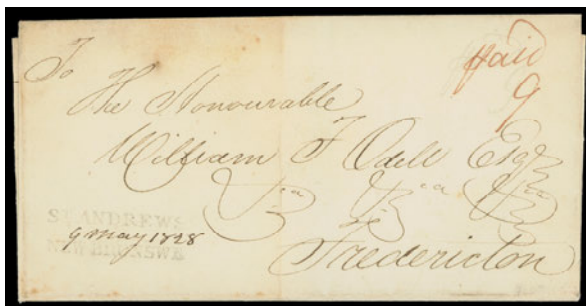 To
paid
9
The Honourable
William F Odell Esqr
&ca &ca &ca
ST ANDREWS
9 May 1828
NEW-BRUNSWK
Fredericton